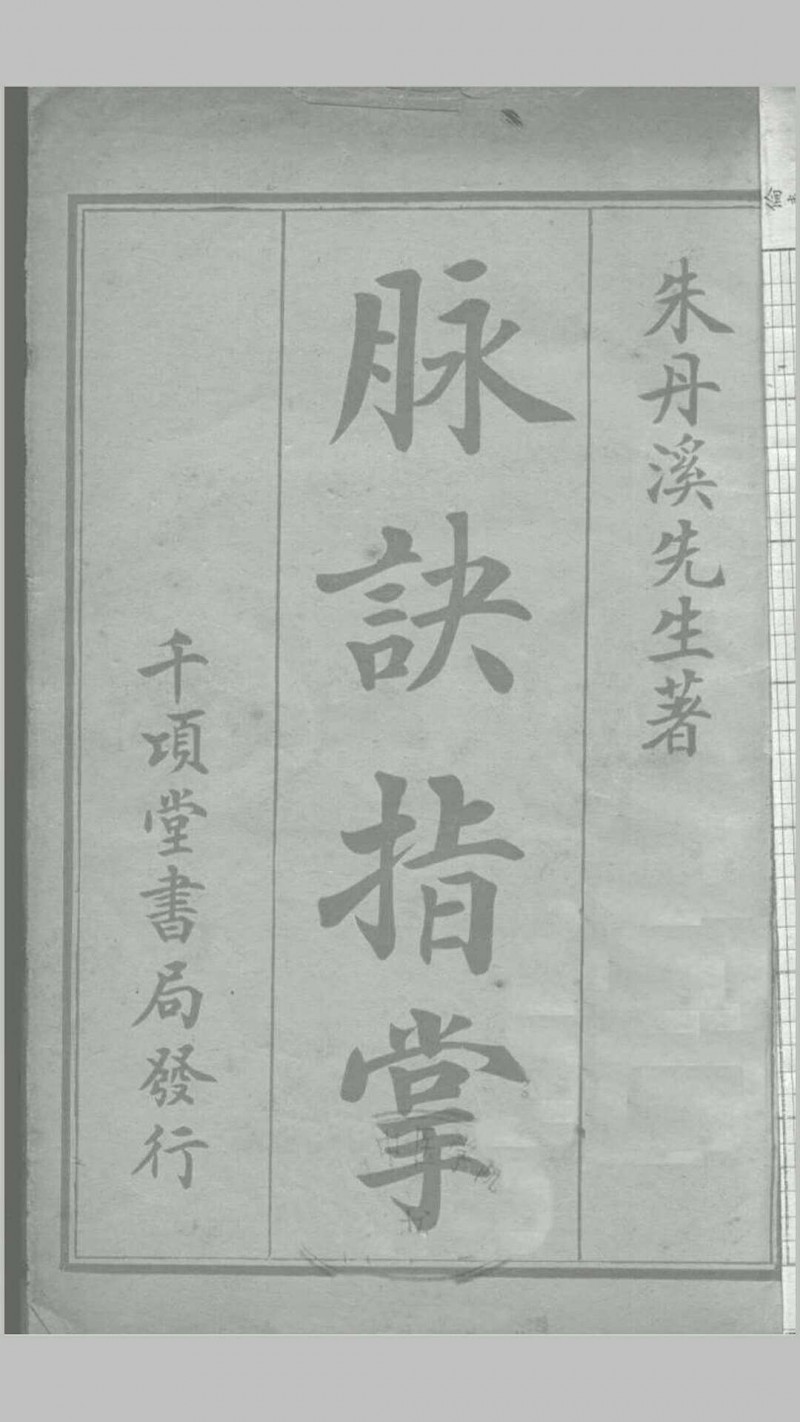 朱丹溪先生著
脉訣指掌
千項堂書局發行